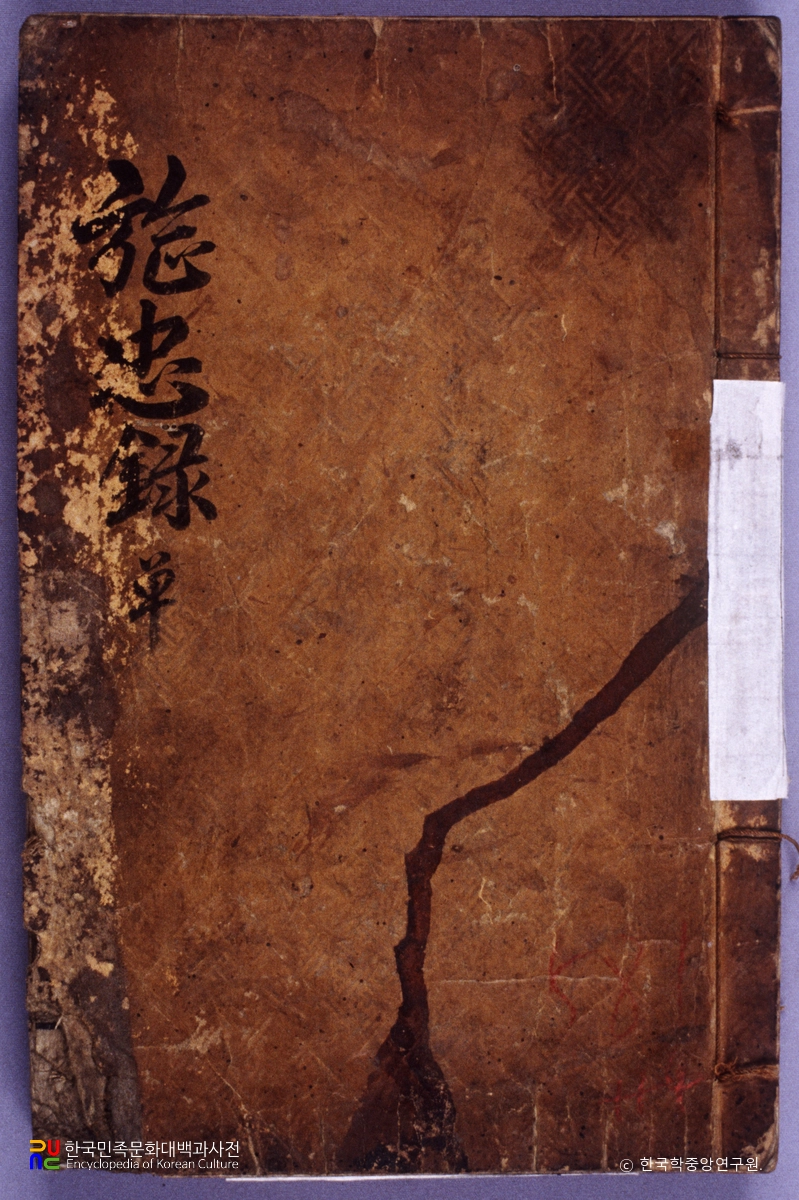 旌忠録
単
한국민족문화대백과사전
Encyclopedia of Korean Culture
© 한국학중앙연구원.